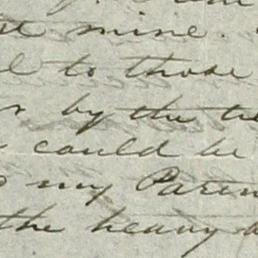 mine.
to those
by the
could be
my Paren
the heavy